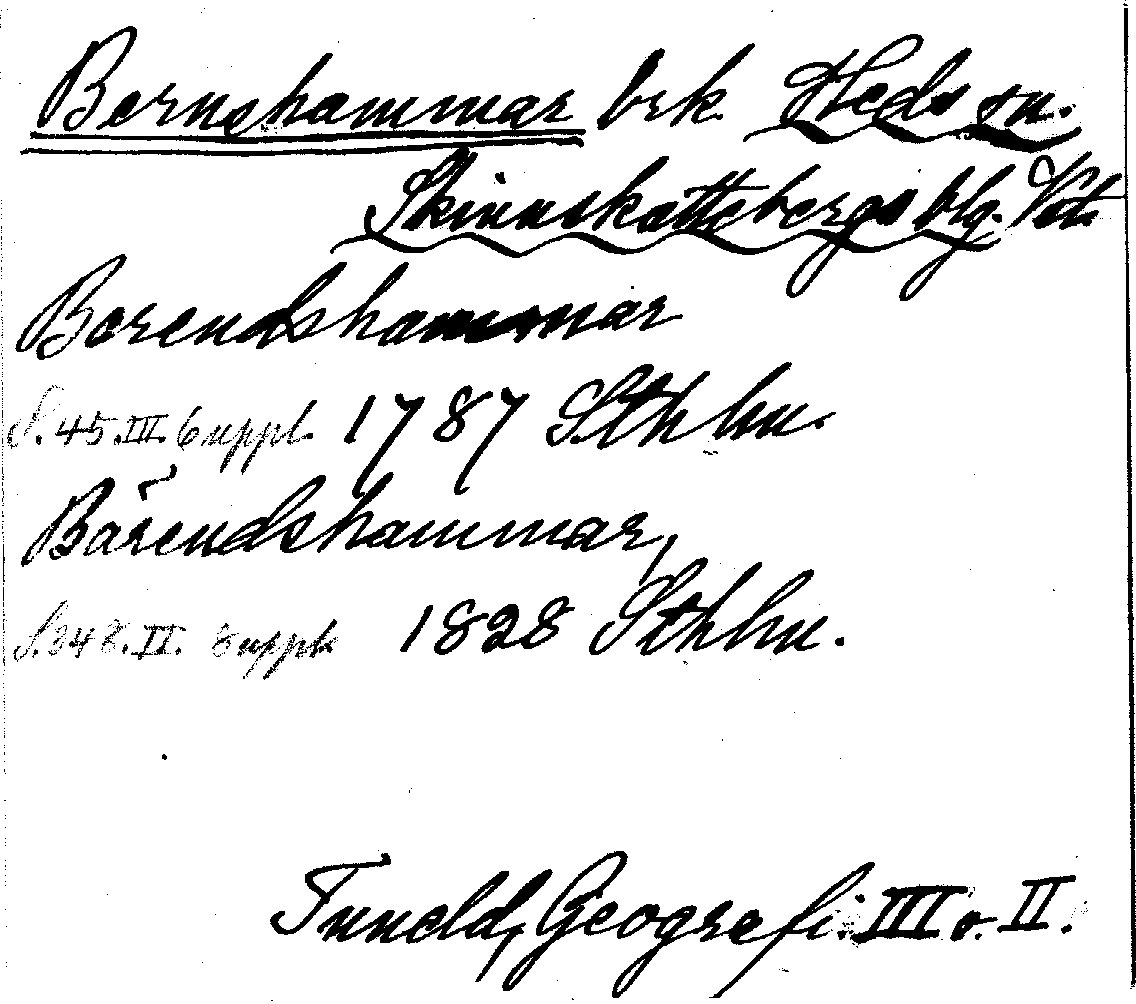 Bernshammar brk. Heds sn.
Skinnskattebergs blg. Vstm
Berendshammar
S. 45. III. 6 uppl. 1787 Sthlm.
Bärendshammar,
S. 348. II. 8 uppl. 1828 Sthlm.
Tuneld, Geografi. III o. II.